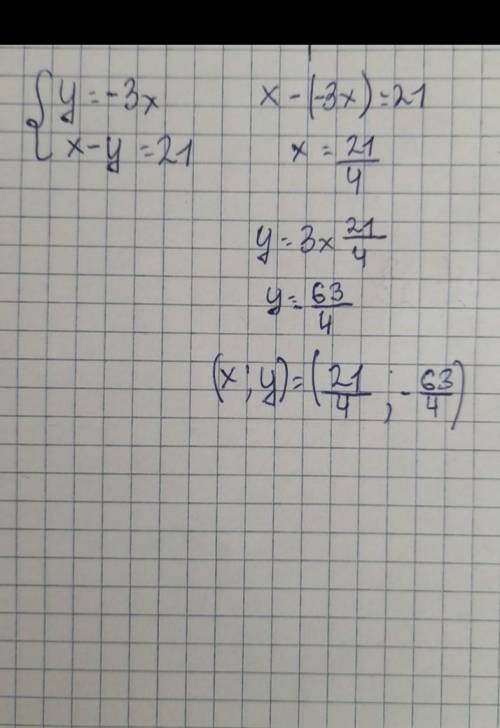 { y = -3x
x - y = 21
x - (-3x) = 21
x = 21/4
y = 3x 21/4
y = 63/4
(x ; y) = (21/4 ; -63/4)